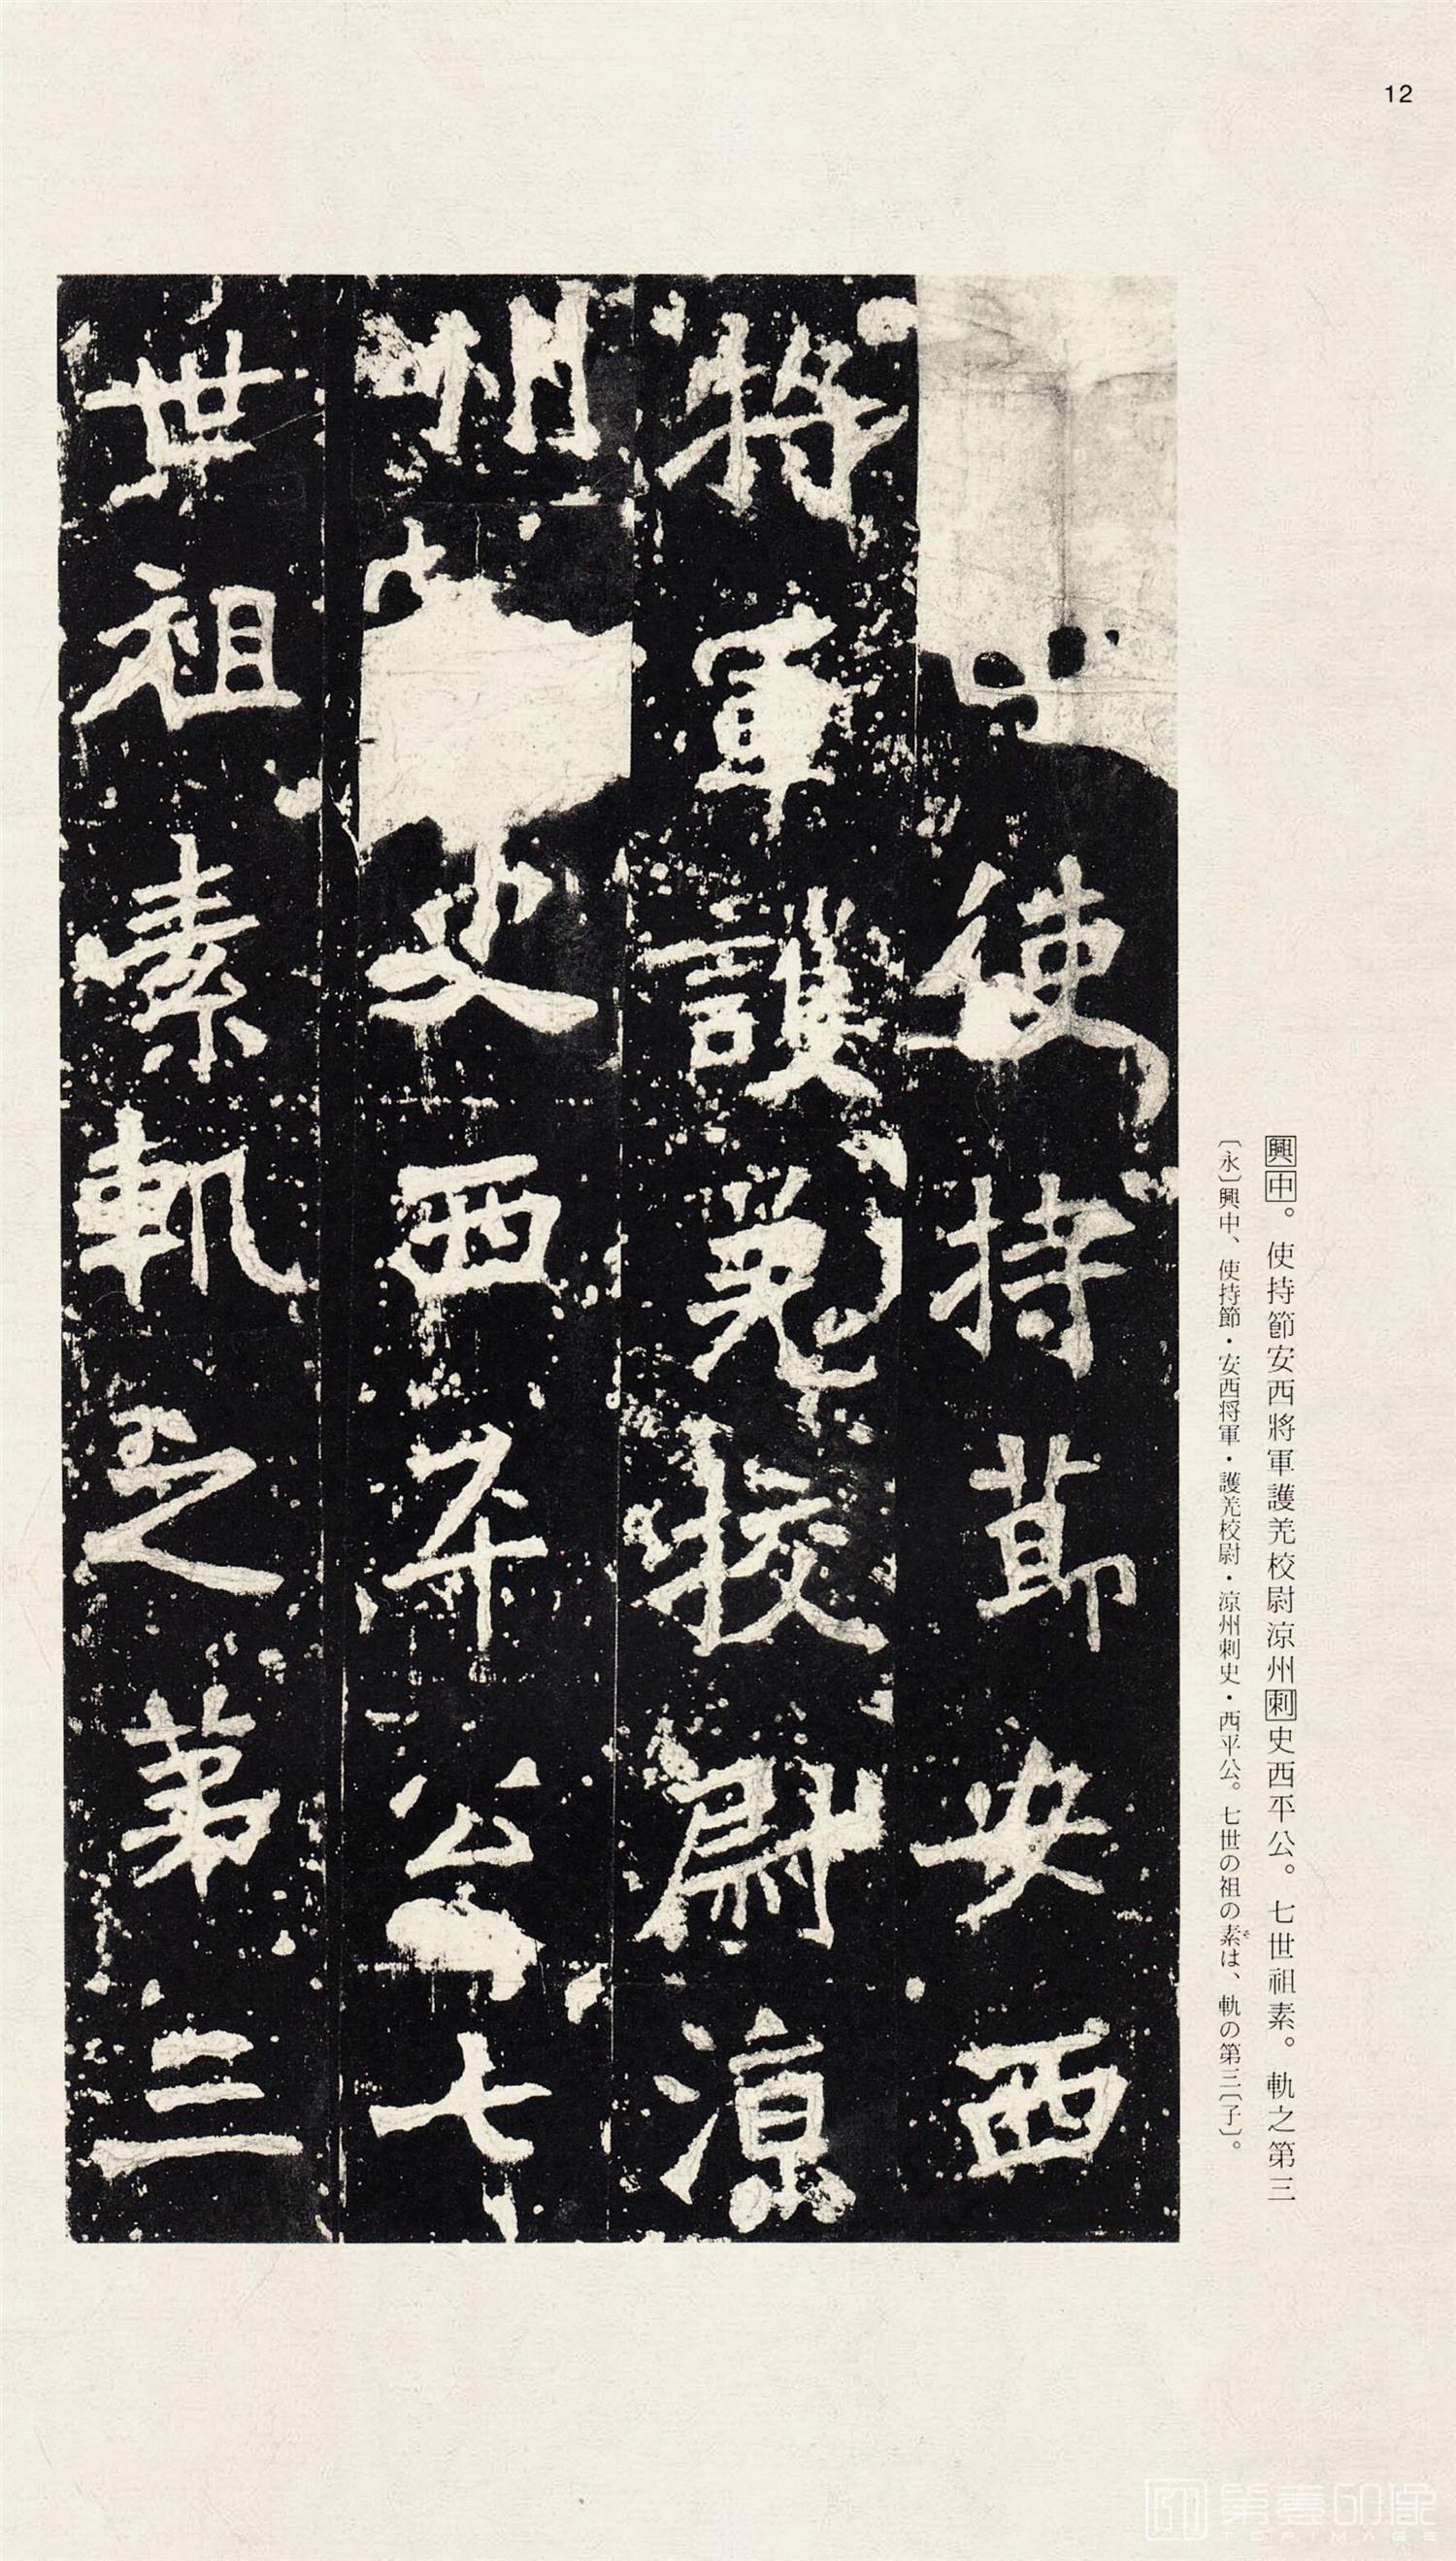 12
興中。使持節安西將軍護羌校尉涼州刺史西平公。七世祖素。軌之第三
〔永〕興中、使持節・安西将軍・護羌校尉・涼州刺史・西平公。七世の祖の素は、軌の第三〔子〕。
そ
使持節安西
將軍護羌校尉涼
州史西平公七
世祖素軌之第三
第壹印像
TOPIMAGE